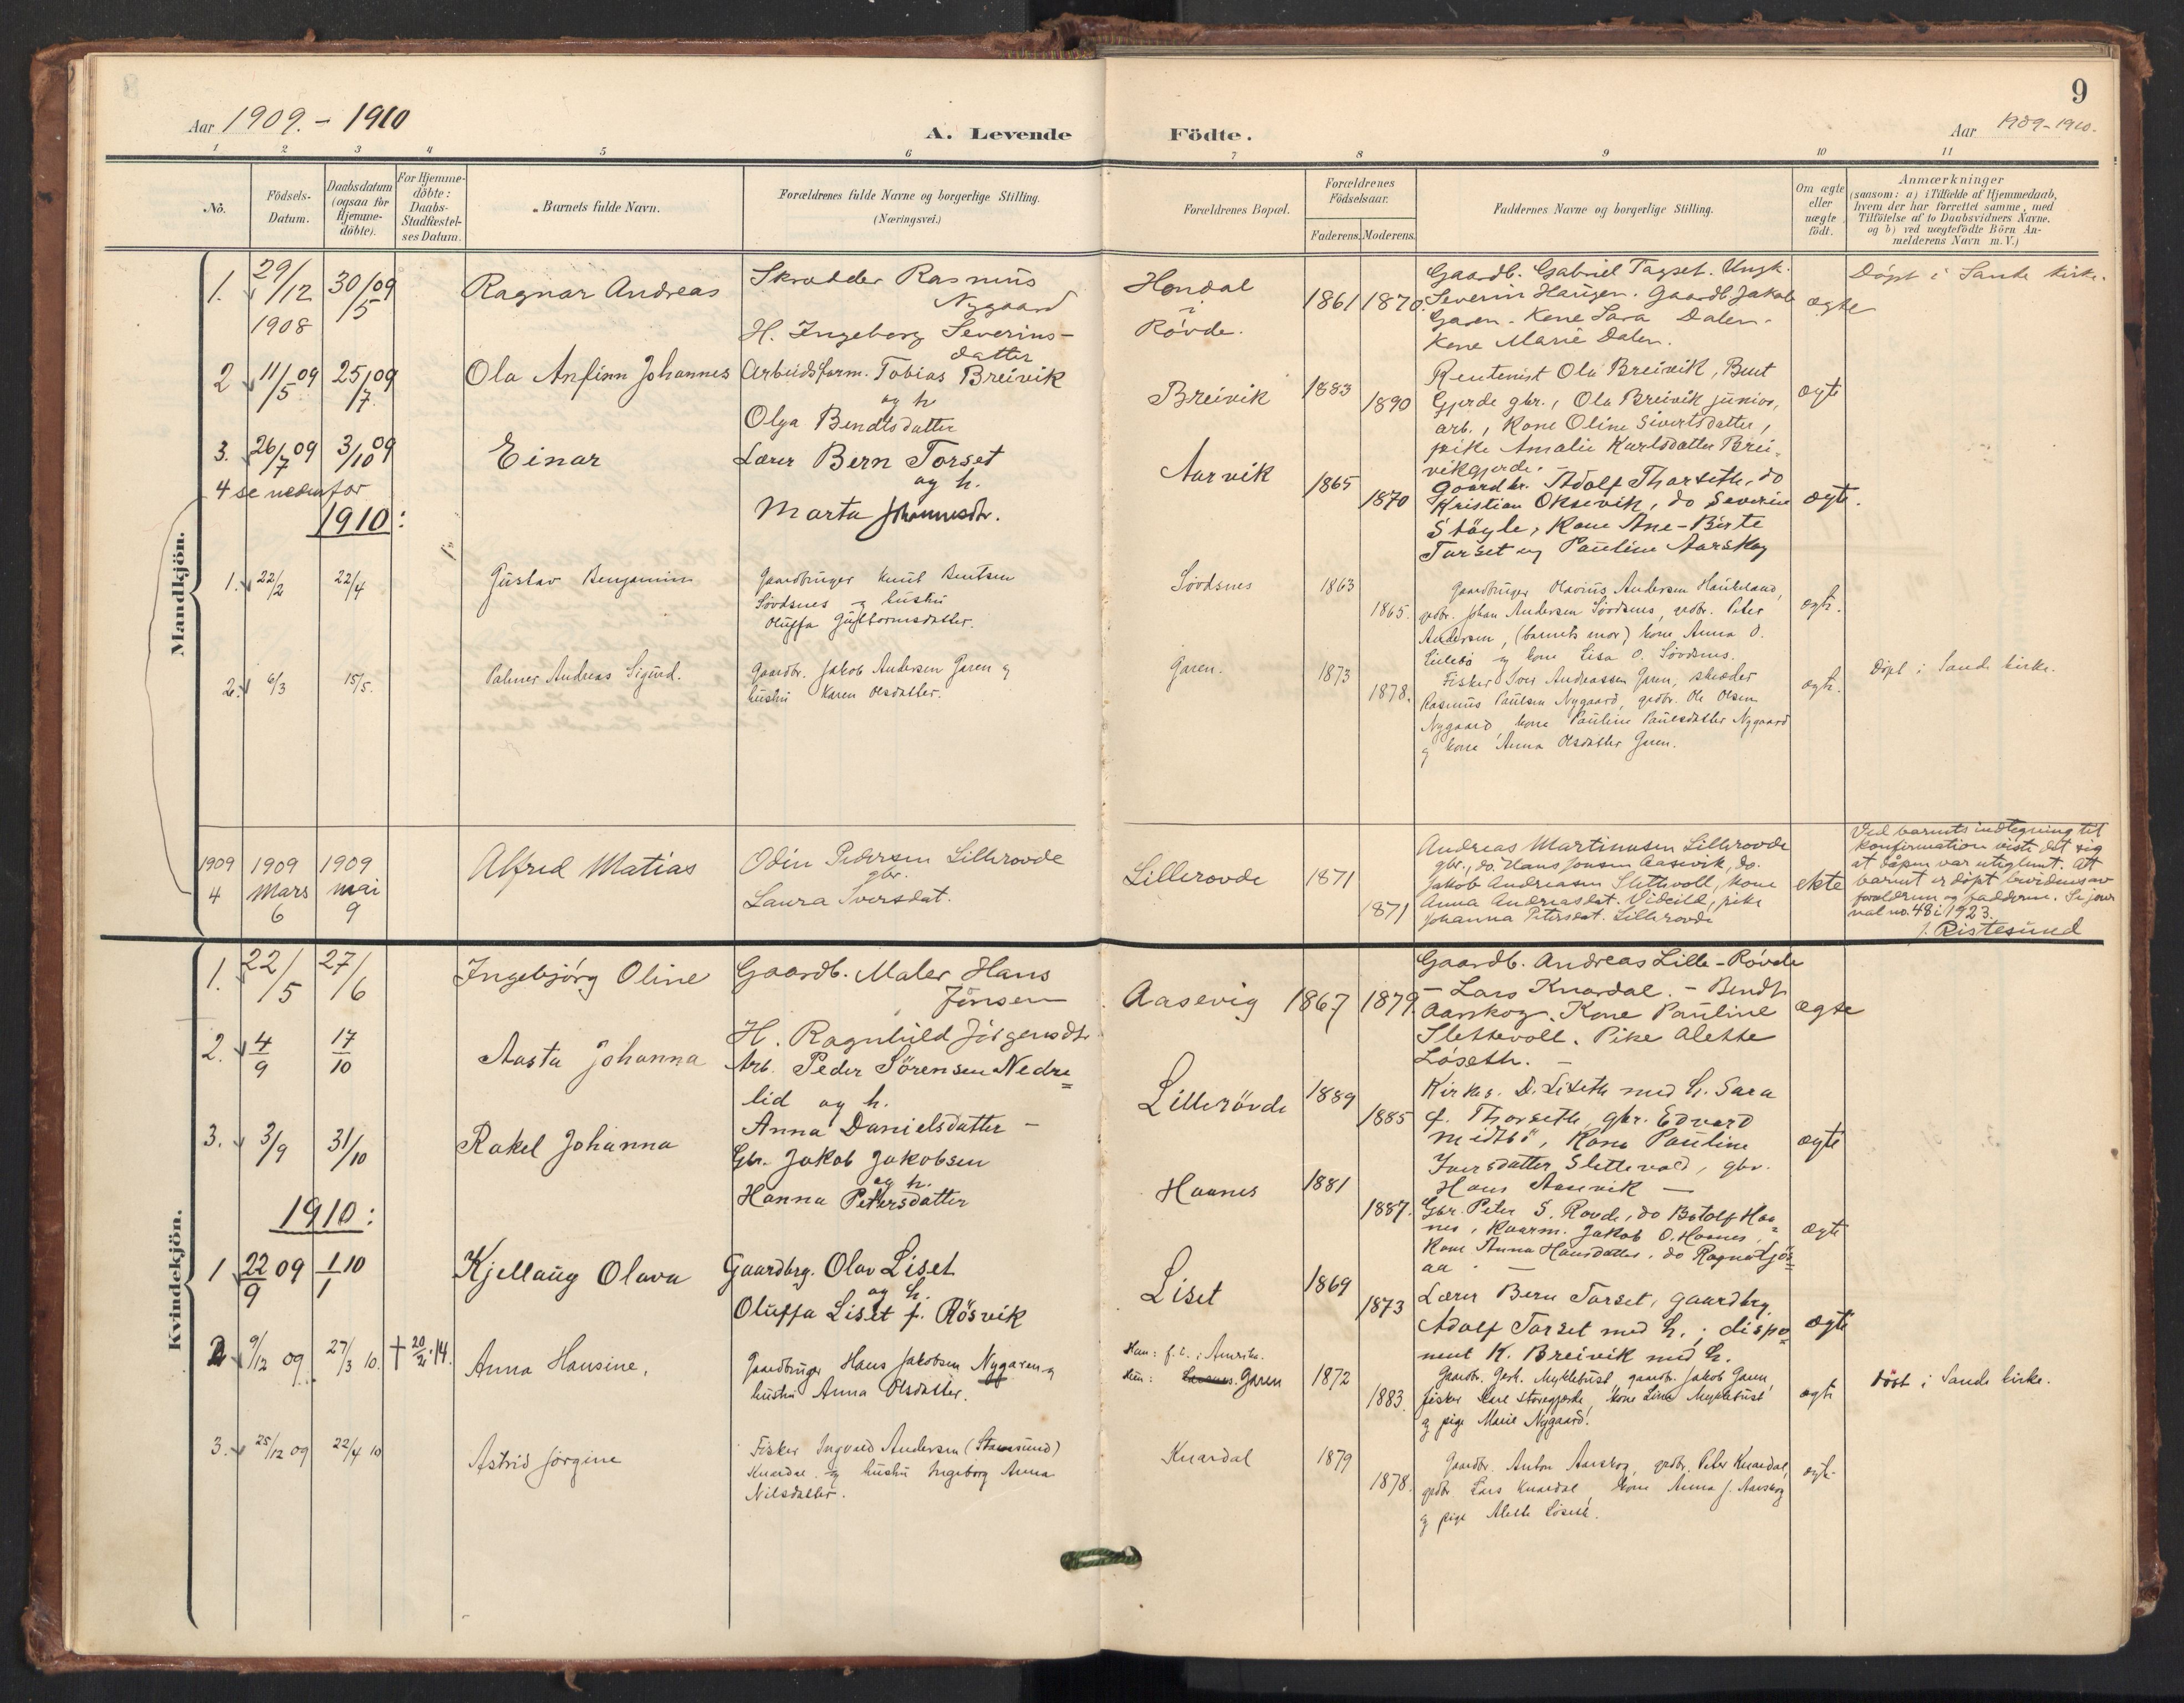 9
Aar 1909. - 1910
A. Levende Födte.
Aar 1909-1910.
1 2 3 4 5 6 7 8 9 10 11
No.
Födsels-Datum.
Daabsdatum (ogsaa for Hjemme-döbte).
For Hjemme-döbte: Daabs-Stadfæstel-ses Datum.
Barnets fulde Navn.
Forældrenes fulde Navne og borgerlige Stilling.
(Næringsvei.)
Forældrenes Bopæl.
Forældrenes Födselsaar.
Faderens. Moderens.
Faddernes Navne og borgerlige Stilling.
Om ægte eller uægte födt.
Anmærkninger
(saasom: a) i Tilfælde af Hjemmedaab,
hvem der har forrettet samme, med
Tilföielse af to Daabsvidners Navne,
og b) ved uægtefödte Börn An-
melderens Navn m. V.)
Mandkjön.
1. 29/12 1908 30/5 09 Ragnar Andreas
Skrædder Rasmus
Nygaard
H. Ingeborg Severins-
datter
Hondal
i
Rövde.
1861 1870.
Gaardb. Gabriel Tagset. Ungk.
Severin Haugen. Gaardb. Jakob
Garen. Kone Sara Dalen.
Kone Marie Dalen.
ægte
Döpt i Sande kirke.
2 11/5 09 25/7 09 Ola Anfinn Johannes
Arbeidsform. Tobias Breivik
og h.
Olga Bendtsdatter
Breivik
1883 1890
Rentenist Ola Breivik, Bent
Gjerde gbr., Ola Breivik junior,
arb., Kone Oline Sivertsdatter,
pike Amalie Karlsdatter Brei-
vikgjerde.
ægte
3. 26/7 09 3/10 09 Einar
Lærer Bern Torset
og h.
Marta Johannesdtr.
Aarvik
1865 1870
Gaardbr. Adolf Tharseth, do
Kristian Oksevik, do Severin
Stöyle, Kone Ane-Birte
Torset og Pauline Aarskog
ægte.
4 se nedenfor
1910:
1. 22/2 22/4 Gustav Benjamin
Gaardbruger Knut Bentsen
Sövdsnes og hustru
Oluffa Guttormsdatter.
Sövdsnes
1863 1865.
Gaardbruger Olavius Andersen Haukeland,
grdbr. Johan Andersen Sövdsnes, grdbr. Peter
Andersen, (barnets mor) kone Anna O.
Lillebö og kone Lisa O. Sövdsnes.
ægte.
2. 6/3 15/5. Palmer Andreas Sigurd.
Gaardbr. Jakob Andersen Garen og
hustru Karen Olsdatter.
Garen.
1873 1878.
Fisker Iver Andreassen Garen, skræder
Rasmus Paulsen Nygaard, grdbr. Ole Olsen
Nygaard, kone Pauline Paulsdatter Nygaard
og kone Anna Olsdatter Garen.
ægte.
Döpt i Sande kirke.
1909 4 1909 Mars 6 1909 mai 9 Alfred Matias
Odin Pedersen Lillerovde
gbr.
Laura Iversdat.
Lillerovde
1871 1871
Andreas Martinusen Lillerovde
gbr., do. Hans Jonsen Aasevik, do.
Jakob Andreasen Slettevoll, kone
Anna Andreasdat. Videild, pike
Johanna Petersdat. Lillerovde
ekte
Ved barnets indtegning til
konfirmation viste det sig
at dåpen var utiglemt. Att
barnet er döpt bevidnes av
foreldren og faddren. Se jour
nal no. 48 i 1923.
J. Ristesund
Kvindekjön.
1. 22/5 27/6 Ingebjörg Oline
Gaardb. Maler Hans
Jonsen
H. Ragnhild Jörgensdtr.
Aasevig
1867 1879
Gaardb. Andreas Lille-Rövde
- Lars Knardal. - Bendt
Aarskog. Kone Pauline
Slettevoll. Pike Alette
Löseth. -
ægte
2. 4/9 17/10 Aasta Johanna
Arb. Peder Sörensen Nedre=
lid og h.
Anna Danielsdatter -
Lillerövde
1889 1885
Kirkes. D. Liseth med h. Sara
f. Thorseth, gbr. Edvard
Midtbö, Kona Pauline
Iversdatter Slettevold, gbr.
Hans Aasevik -
ægte
3. 3/9 31/10 Rakel Johanna
Gbr. Jakob Jakobsen
og h.
Hanna Petersdatter
Haanes
1881 1887.
Gbr. Peter S. Rovde, do Botolf Haa=
nes, Kaarm. Jakob O. Haanes,
Kone Anna Hansdatter, do Ragna
aa -
ægte
1910:
1 22/9 09 1/1 10 Kjellaug Olava
Gaardbrg. Olav Liset
og h.
Oluffa Liset f. Rösvik
Liset
1869 1873
Lærer Bern Torset, gaardbrg.
Adolf Torset med h.; dispo=
nent K. Breivik med h.
ægte
2 9/12 09. 27/3 10. † 20/2 14. Anna Hansine.
Gaardbruger Hans Jakobsen Nygaren og
hustru Anna Olsdatter.
Han: f. t. i Amerika.
Hun: Garen
1872 1883.
Gaardbr. Gert. Myklebust gaardbr. Jakob Garen,
fisker Karl Storegjerde, kone Lina Myklebust
og pige Marie Nygaard.
ægte
Döbt i Sande kirke.
3. 25/12 09 22/4 10 Astrid Jörgine
Fisker Ingvald Andersen (Stamsund)
Knardal og hustru Ingeborg Anna
Nilsdatter.
Knardal
1879 1878.
Gaardbr. Anton Aarskog, grdbr. Peter Knardal,
grdbr. Lars Knardal, kone Anna J. Aarskog
og pige Alette Löseth.
ægte